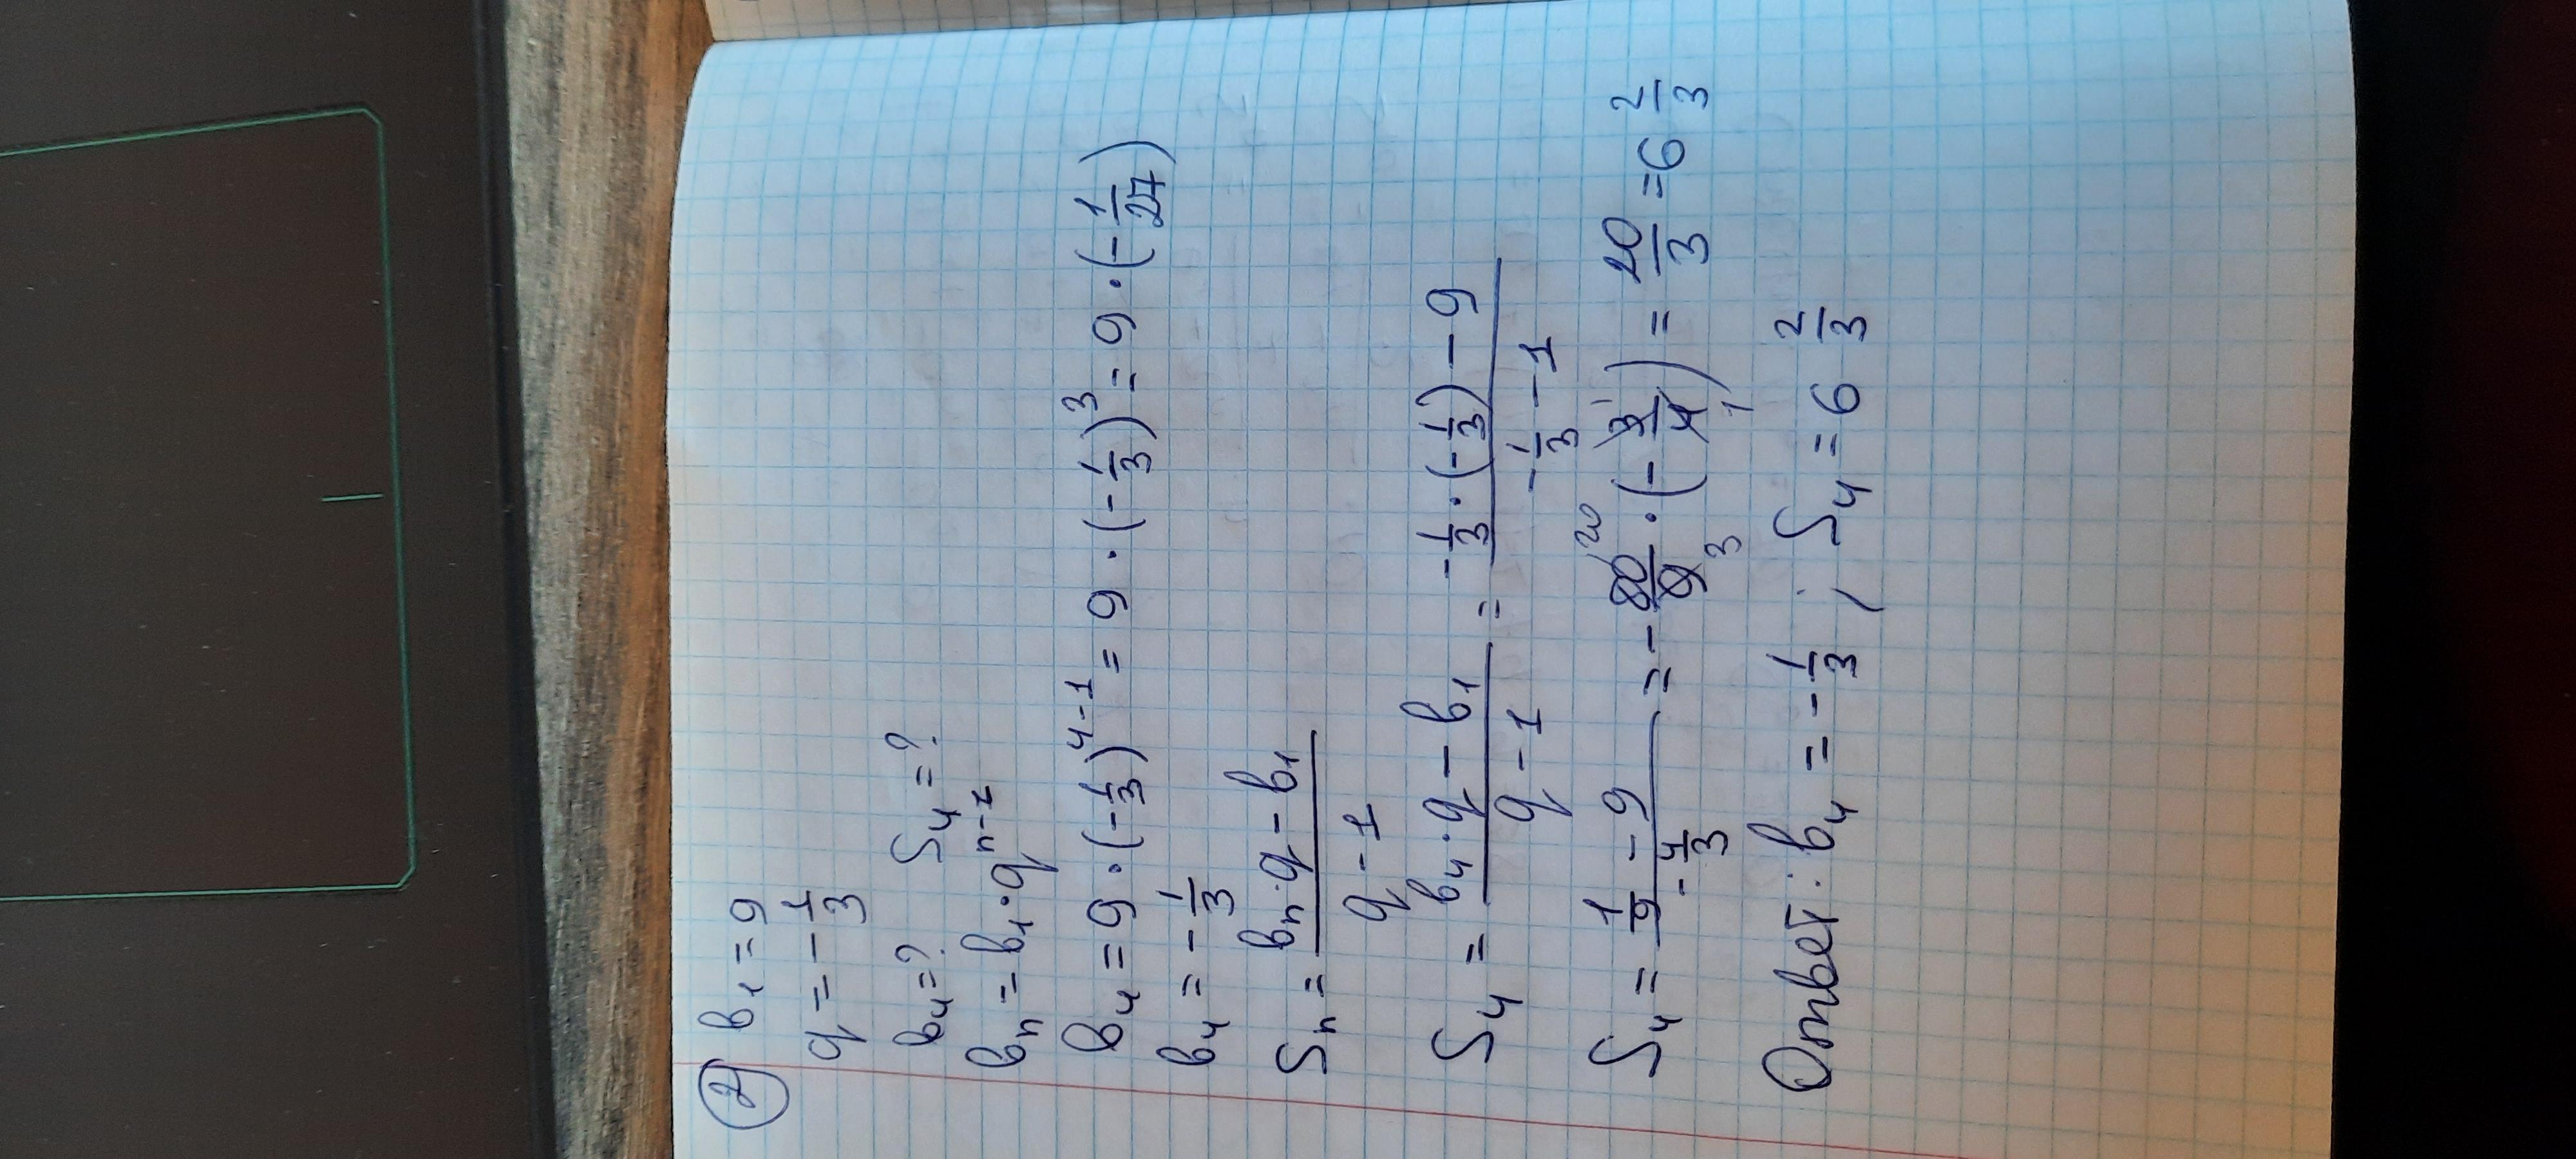 ② b₁ = 9
q = -1/3
b₄ = ? S₄ = ?
bₙ = b₁ · qⁿ⁻¹
b₄ = 9 · (-1/3)⁴⁻¹ = 9 · (-1/3)³ = 9 · (-1/27)
b₄ = -1/3
Sₙ = (bₙ · q - b₁)/(q - 1)
S₄ = (b₄ · q - b₁)/(q - 1) = (-1/3 · (-1/3) - 9)/(-1/3 - 1)
S₄ = (1/9 - 9)/(-4/3) = -80/9 · (-3/4) = 20/3 = 6 2/3
Ответ: b₄ = -1/3 ; S₄ = 6 2/3